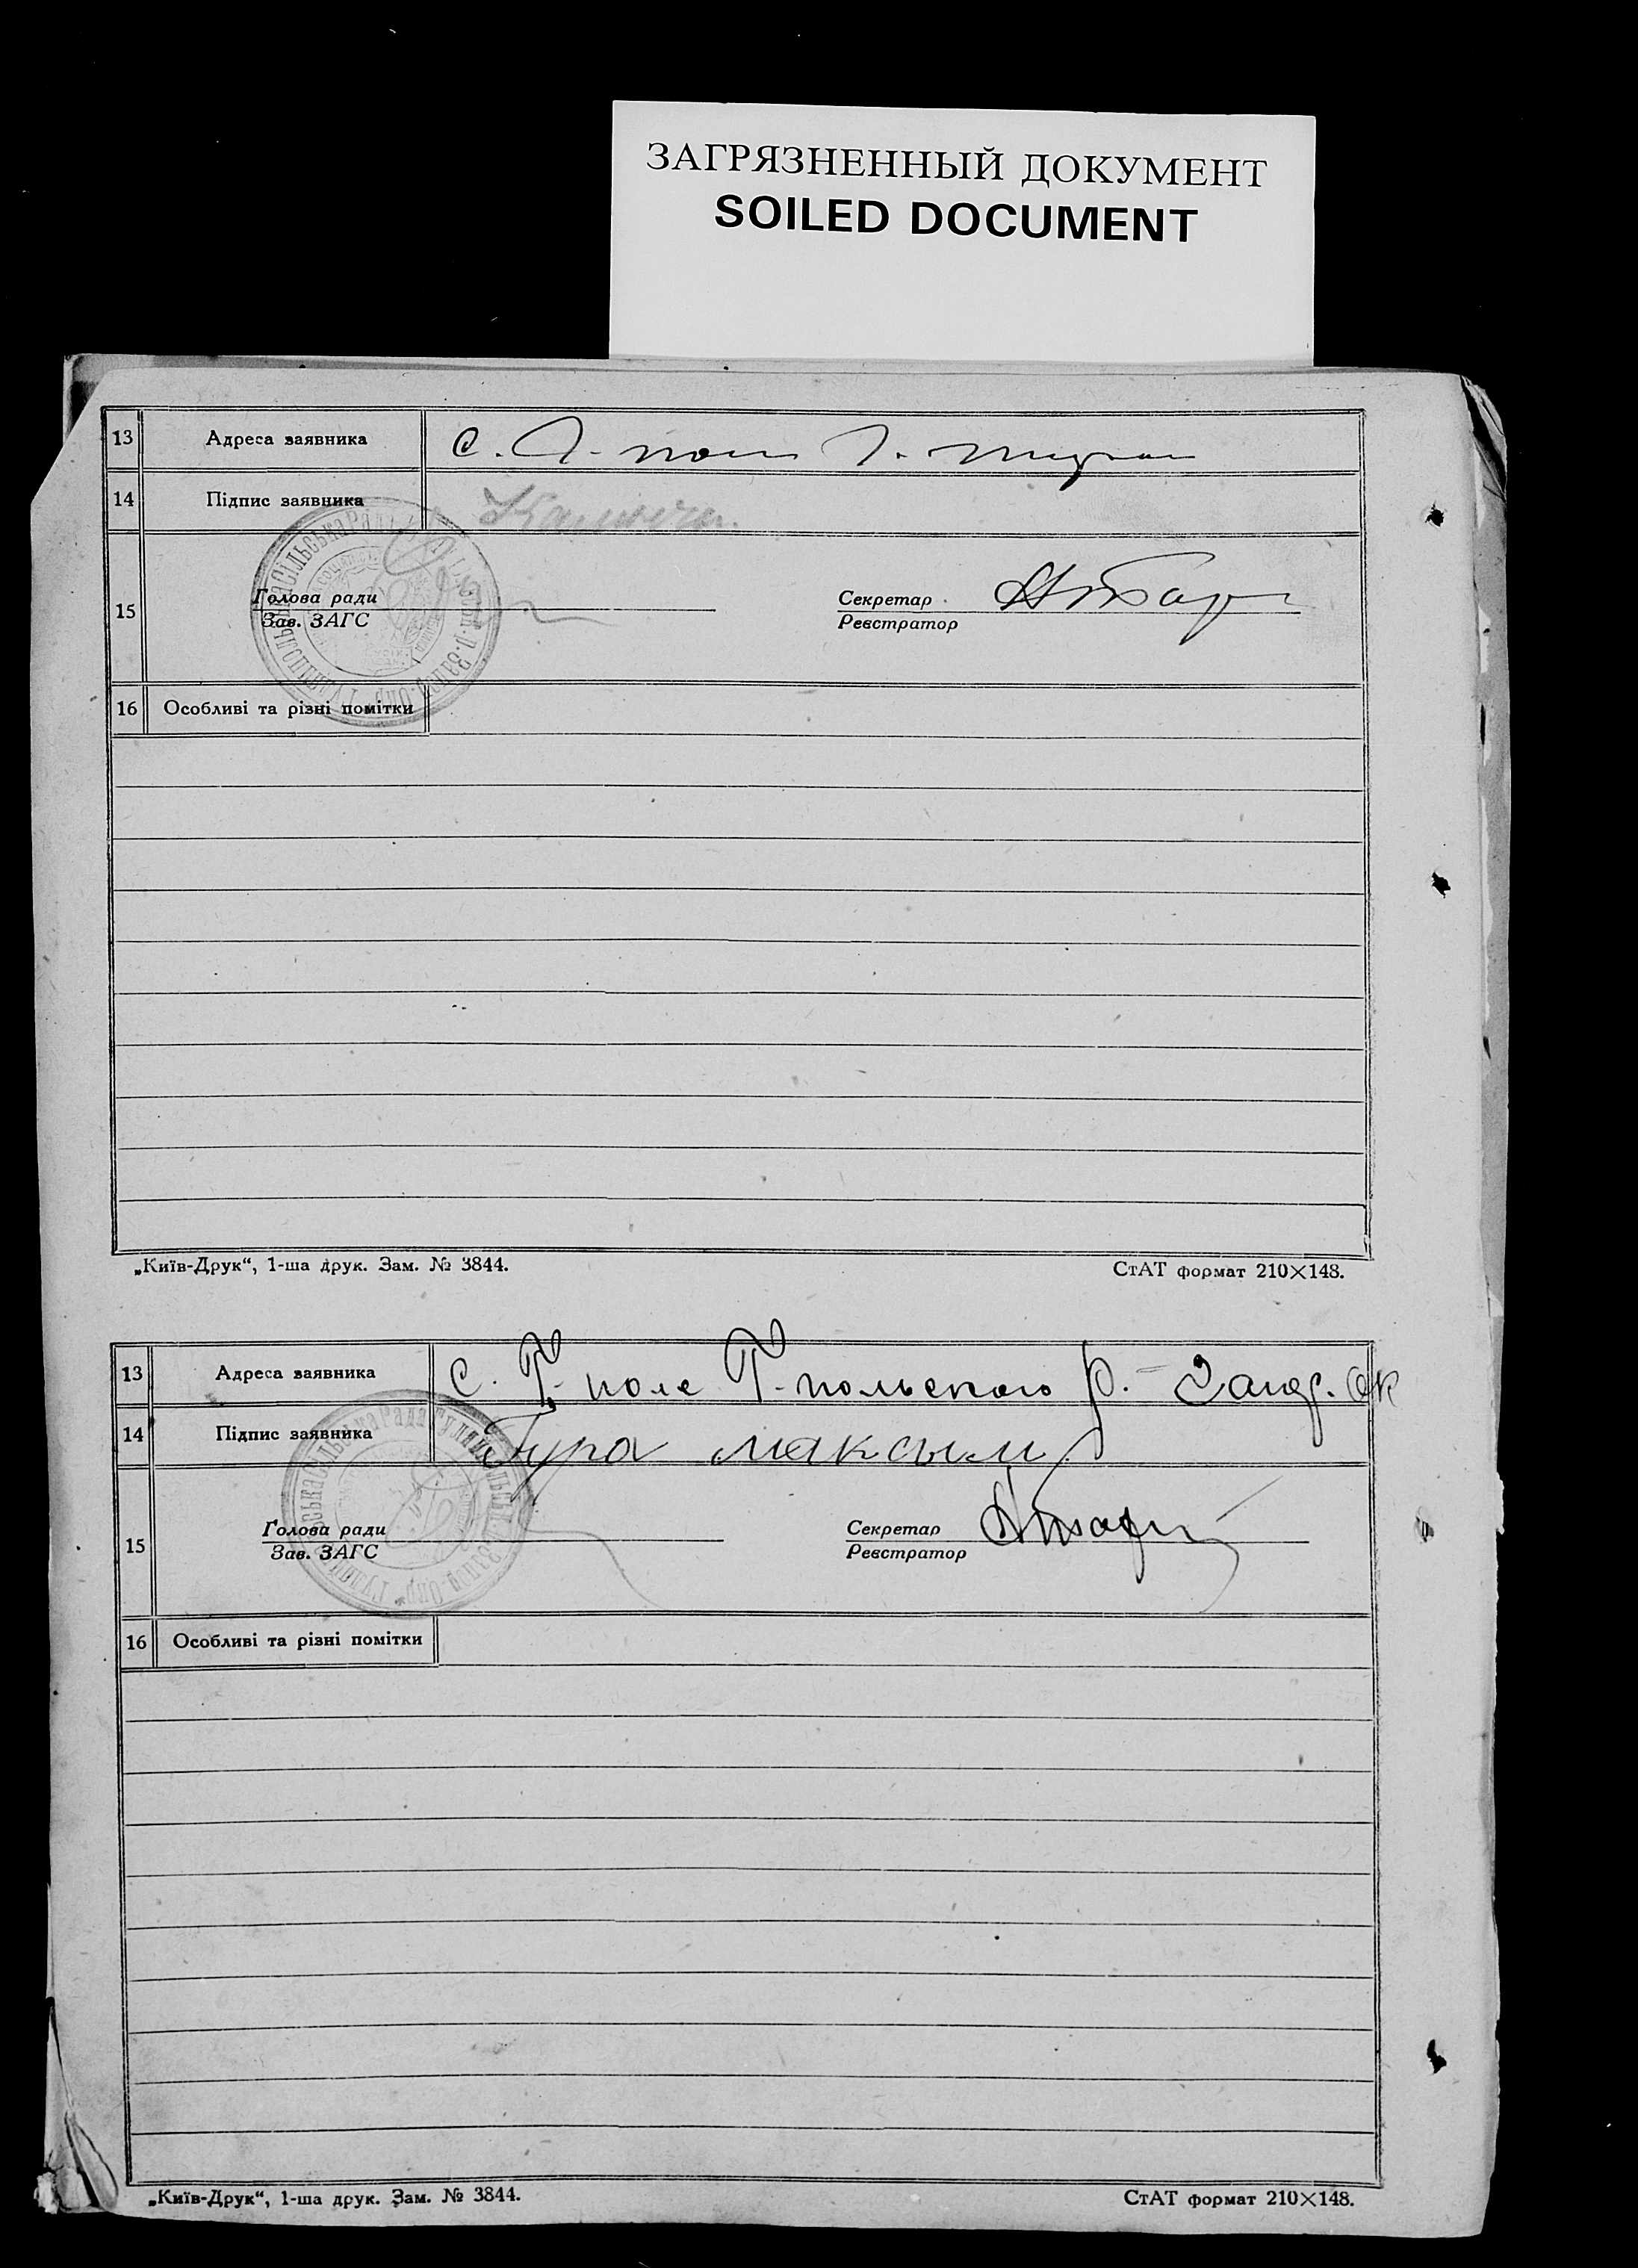 ЗАГРЯЗНЕННЫЙ ДОКУМЕНТ
SOILED DOCUMENT
13 Адреса заявника с. Г-поле Г-
14 Підпис заявника
15 Голова ради Секретар
Зав. ЗАГС Реєстратор
16 Особливі та різні помітки
„Київ-Друк“, 1-ша друк. Зам. № 3844. СтАТ формат 210×148.
13 Адреса заявника с. Г-поле Г-польского р.
14 Підпис заявника Гура максым
15 Голова ради Секретар
Зав. ЗАГС Реєстратор
16 Особливі та різні помітки
„Київ-Друк“, 1-ша друк. Зам. № 3844. СтАТ формат 210×148.